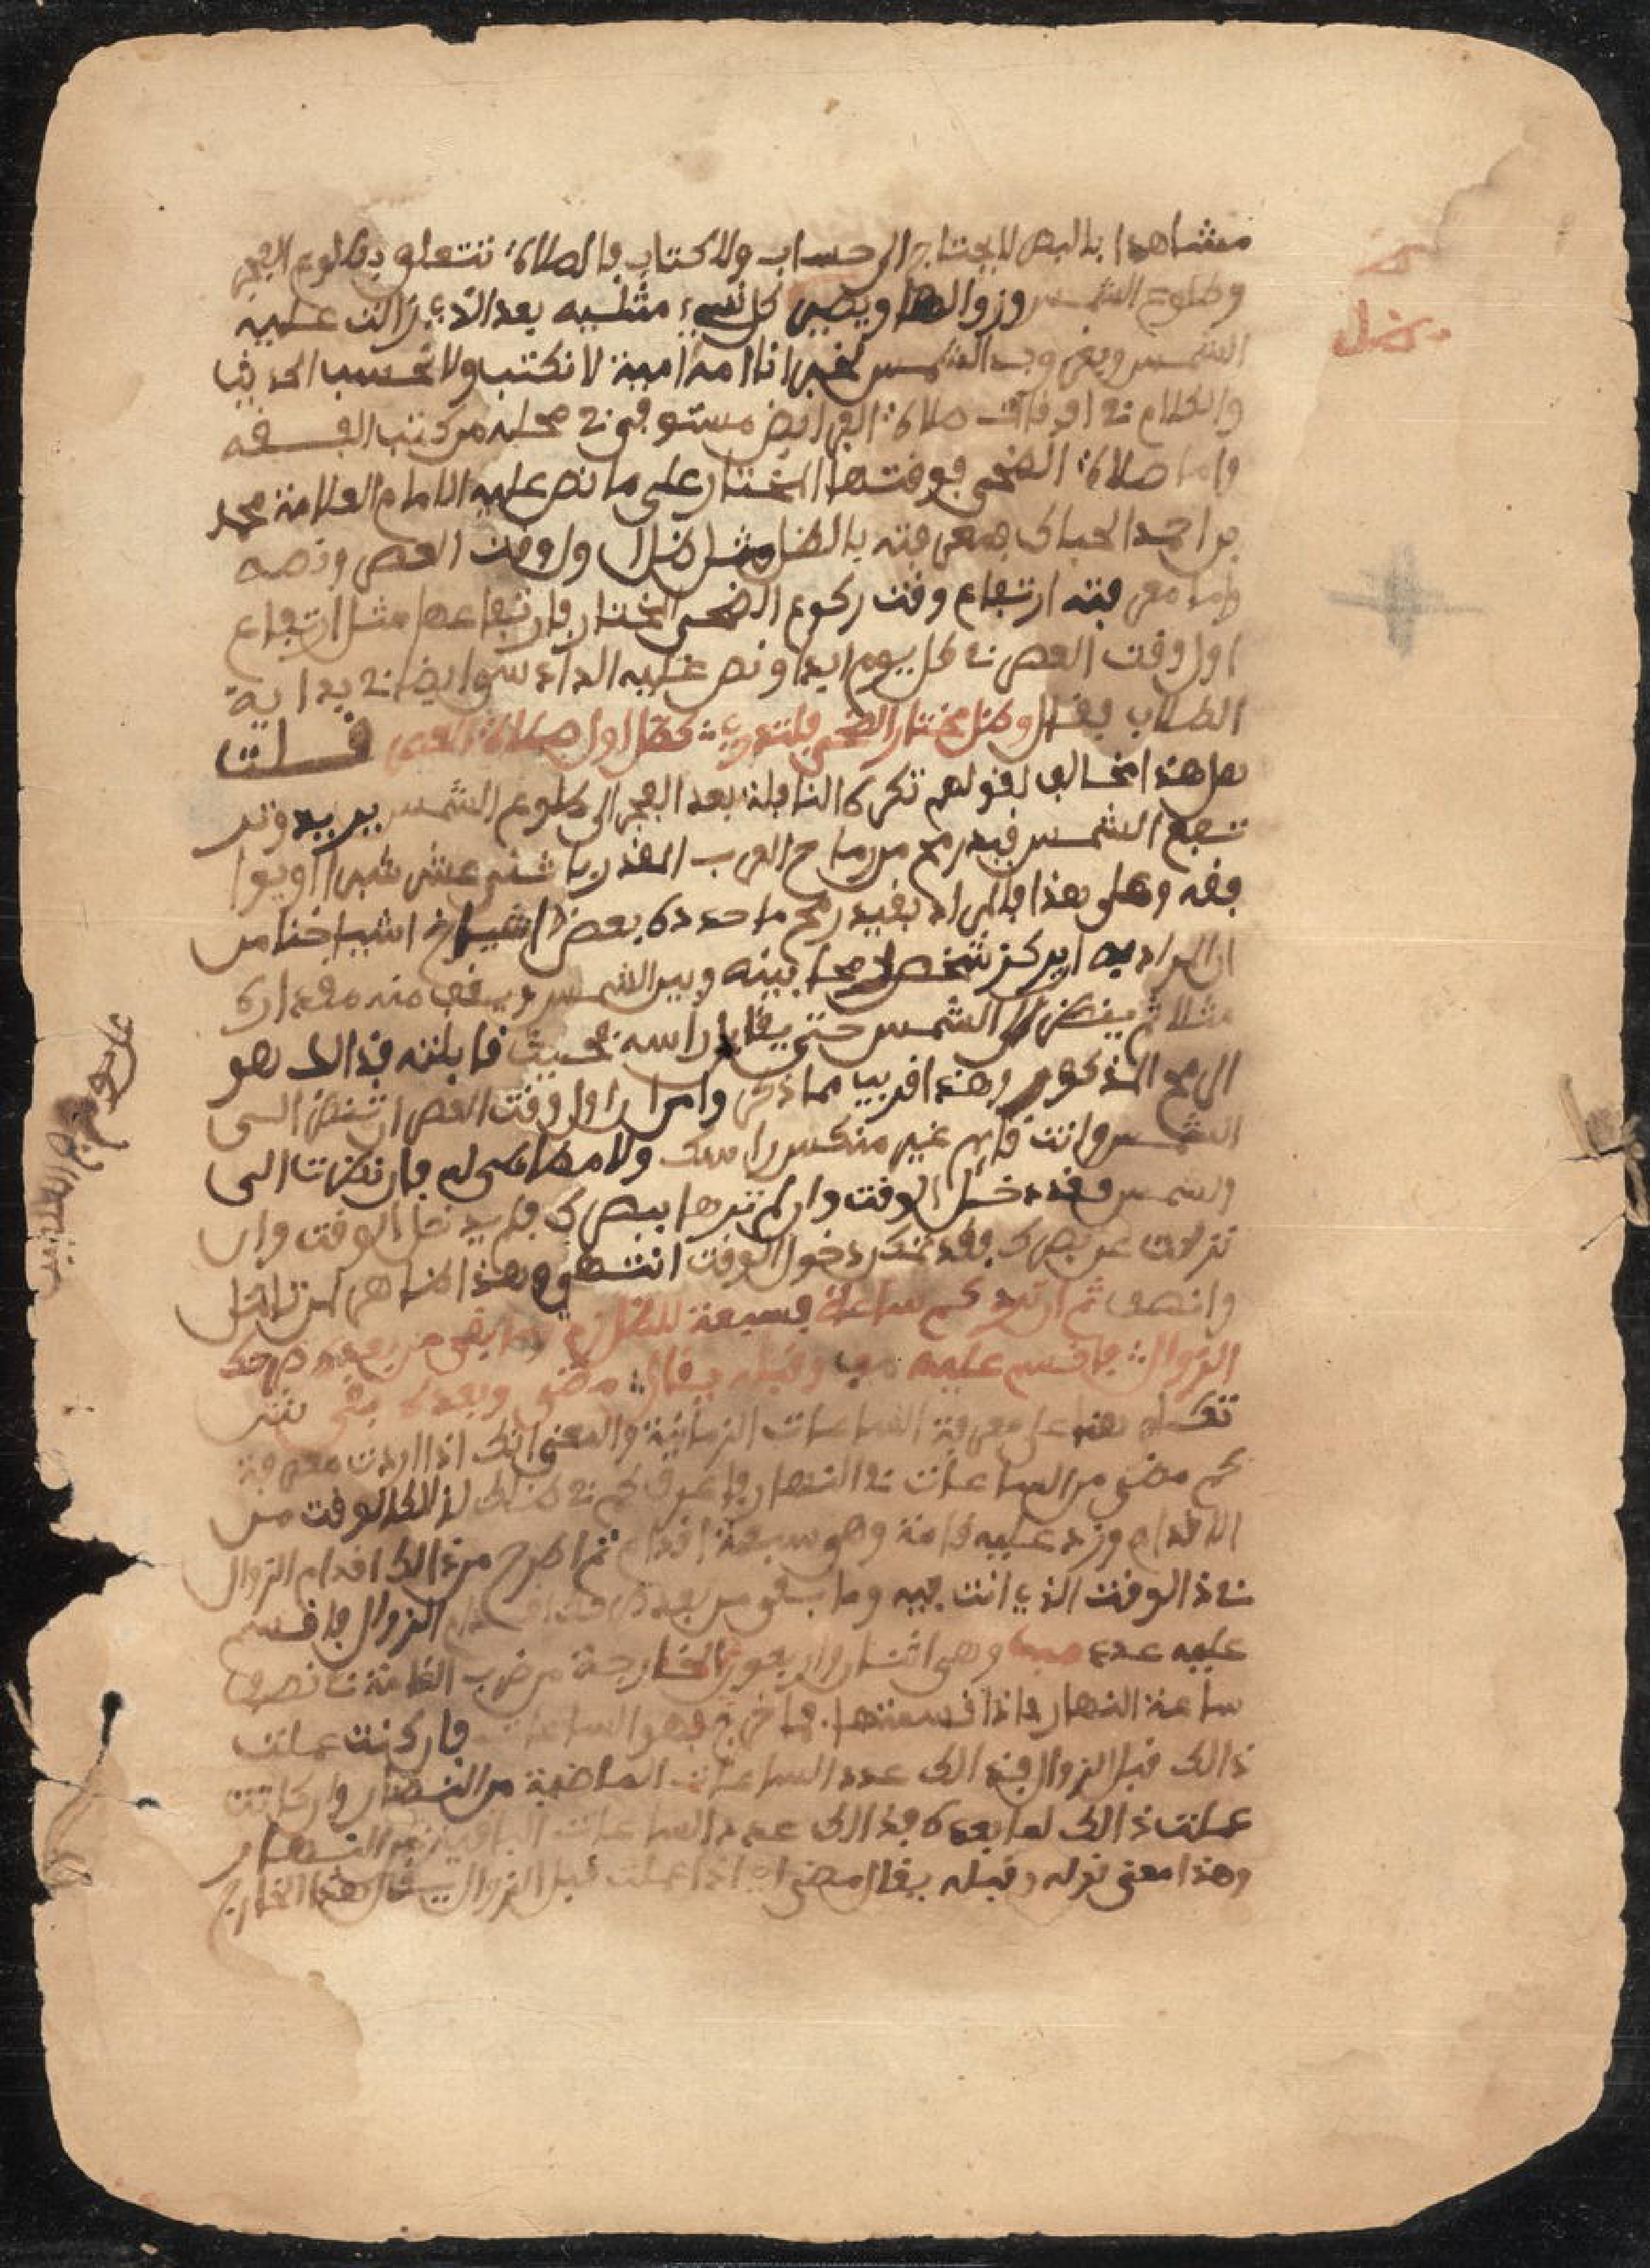 مشاهدا بالبصر لا يحتاج الى حساب ولا كتاب فالصلاة تتعلق بطلوع الفجر
وطلوع الشمس وزوالها ويصير كل شيء مثليه بعد الذي زالت عليه
الشمس وبغروب الشمس لخبر انا امة امية لا نكتب ولا نحسب الحديث
والكلام في اوقات صلاة الفرايض مستوفى في محله من كتب الفقه
واما صلاة الضحى فوقتها المختار على ما نص عليه الامام العلامة محمد
بن احمد الحباك بمعرفته بالظل مثل ظل اول وقت العصر ونصه
واما معرفته ارتفاع وقت ركوع الضحى المختار فارتفاعها مثل ارتفاع
اول وقت العصر في كل يوم ابدا ونص عليه الدادسي ايضا في بداية
الطلاب بقوله وظل مختار الضحى فلتدري كظل اول صلاة العصر قلت
هل هذا مخالف لقولهم تكره النافلة بعد الفجر الى طلوع الشمس يريدون
ترتفع الشمس قيد رمح من رماح العرب المقدر باثني عشر شبرا او يوا
فقه وعلى هذا فالمراد بقيد رمح ما حدده بعض اشياخ اشياخنا من
ان المراد به ان يركز شخص رمحا بينه وبين الشمس ويقف منه مقداره
مثلا ثم ينظر الى الشمس حتى يقابل راسه بحيث قابلته فذالك هو
الرمح المذكور وهذا قريب مما ذكر وامر اول وقت العصر ان تنظر الى
الشمس وانت قايم غير منكس راسك ولا مطاطئ له فان نظرت الى
الشمس فقد دخل الوقت وان لم ترها ببصرك فلم يدخل الوقت وان
نزلت عن بصرك فقد تمكن دخول الوقت انتهى وهذا ظاهر لمن تامل
وانصف ثم ان ترد كم ساعة فسبعة للظل زد وما بقى من بعد طرحك
الزوال فاقسم عليه مب وقبله يقال مضى وبعده بقى
تكلم هنا على معرفة الساعات الزمانية والمعنى انك اذا اردت معرفة
كم مضى من الساعات في النهار فاعرف كم في ظلك لذلك الوقت من
الاقدام وزد عليه قامة وهو سبعة اقدام ثم اطرح من ذالك اقدام الزوال
في ذا الوقت الذي انت فيه وما بقى من بعد طرحك اقدام الزوال فاقسم
عليه عدد مب وهي اثنان واربعون الخارجة من ضرب القامة في نصف
ساعة النهار فاذا قسمتها فما خرج فهو الساعات فان كنت عملت
ذالك قبل الزوال فذالك عدد الساعات الماضية من النهار وان كنت
عملت ذالك لما بعده فذالك عدد الساعات الباقية من النهار
وهذا معنى قوله وقبله يقال مضى اي اذا عملت قبل الزوال يقال هذا الخارج